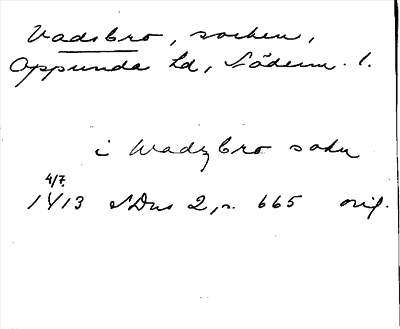 Vadsbro, socken,
Oppunda hd, Söderm. l.
i Wadzbro sokn
4/7
1413 SDns 2, s. 665 orig.